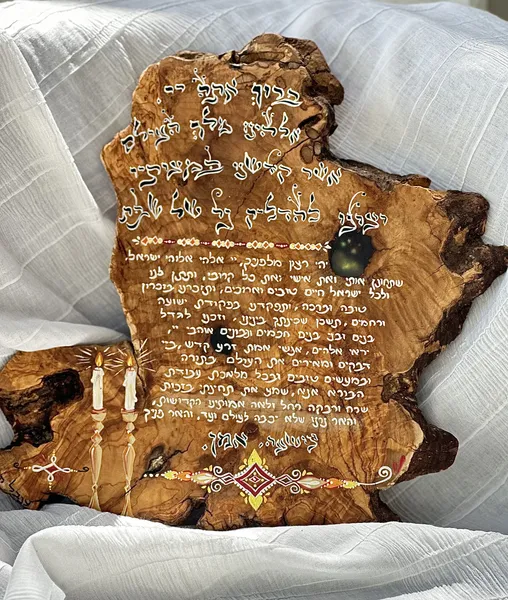 ברוך אתה יי
אלהינו מלך העולם
אשר קדשנו במצותיו
וציונו להדליק נר של שבת
יהי רצון מלפניך, יי אלהי ואלוהי ישראל,
שתחונן אותי ואת אישי ואת כל קרובי, ותתן לנו
ולכל ישראל חיים טובים וארוכים, ותזכרנו בזכרון
טובה וברכה, ותפקדנו בפקודת ישועה
ורחמים, ותשכן שכינתך בינינו, וזכנו לגדל
בנים ובני בנים חכמים ונבונים אוהבי יי,
יראי אלהים, אנשי אמת זרע קדש, ביי
דבקים ומאירים את העולם בתורה
ובמעשים טובים ובכל מלאכת עבודת
הבורא אנא, שמע את תחינתי בזכות
שרה ורבקה רחל ולאה אמותינו הקדושות,
והאר נרנו שלא יכבה לעולם ועד, והאר פניך
ונושעה. אמן.